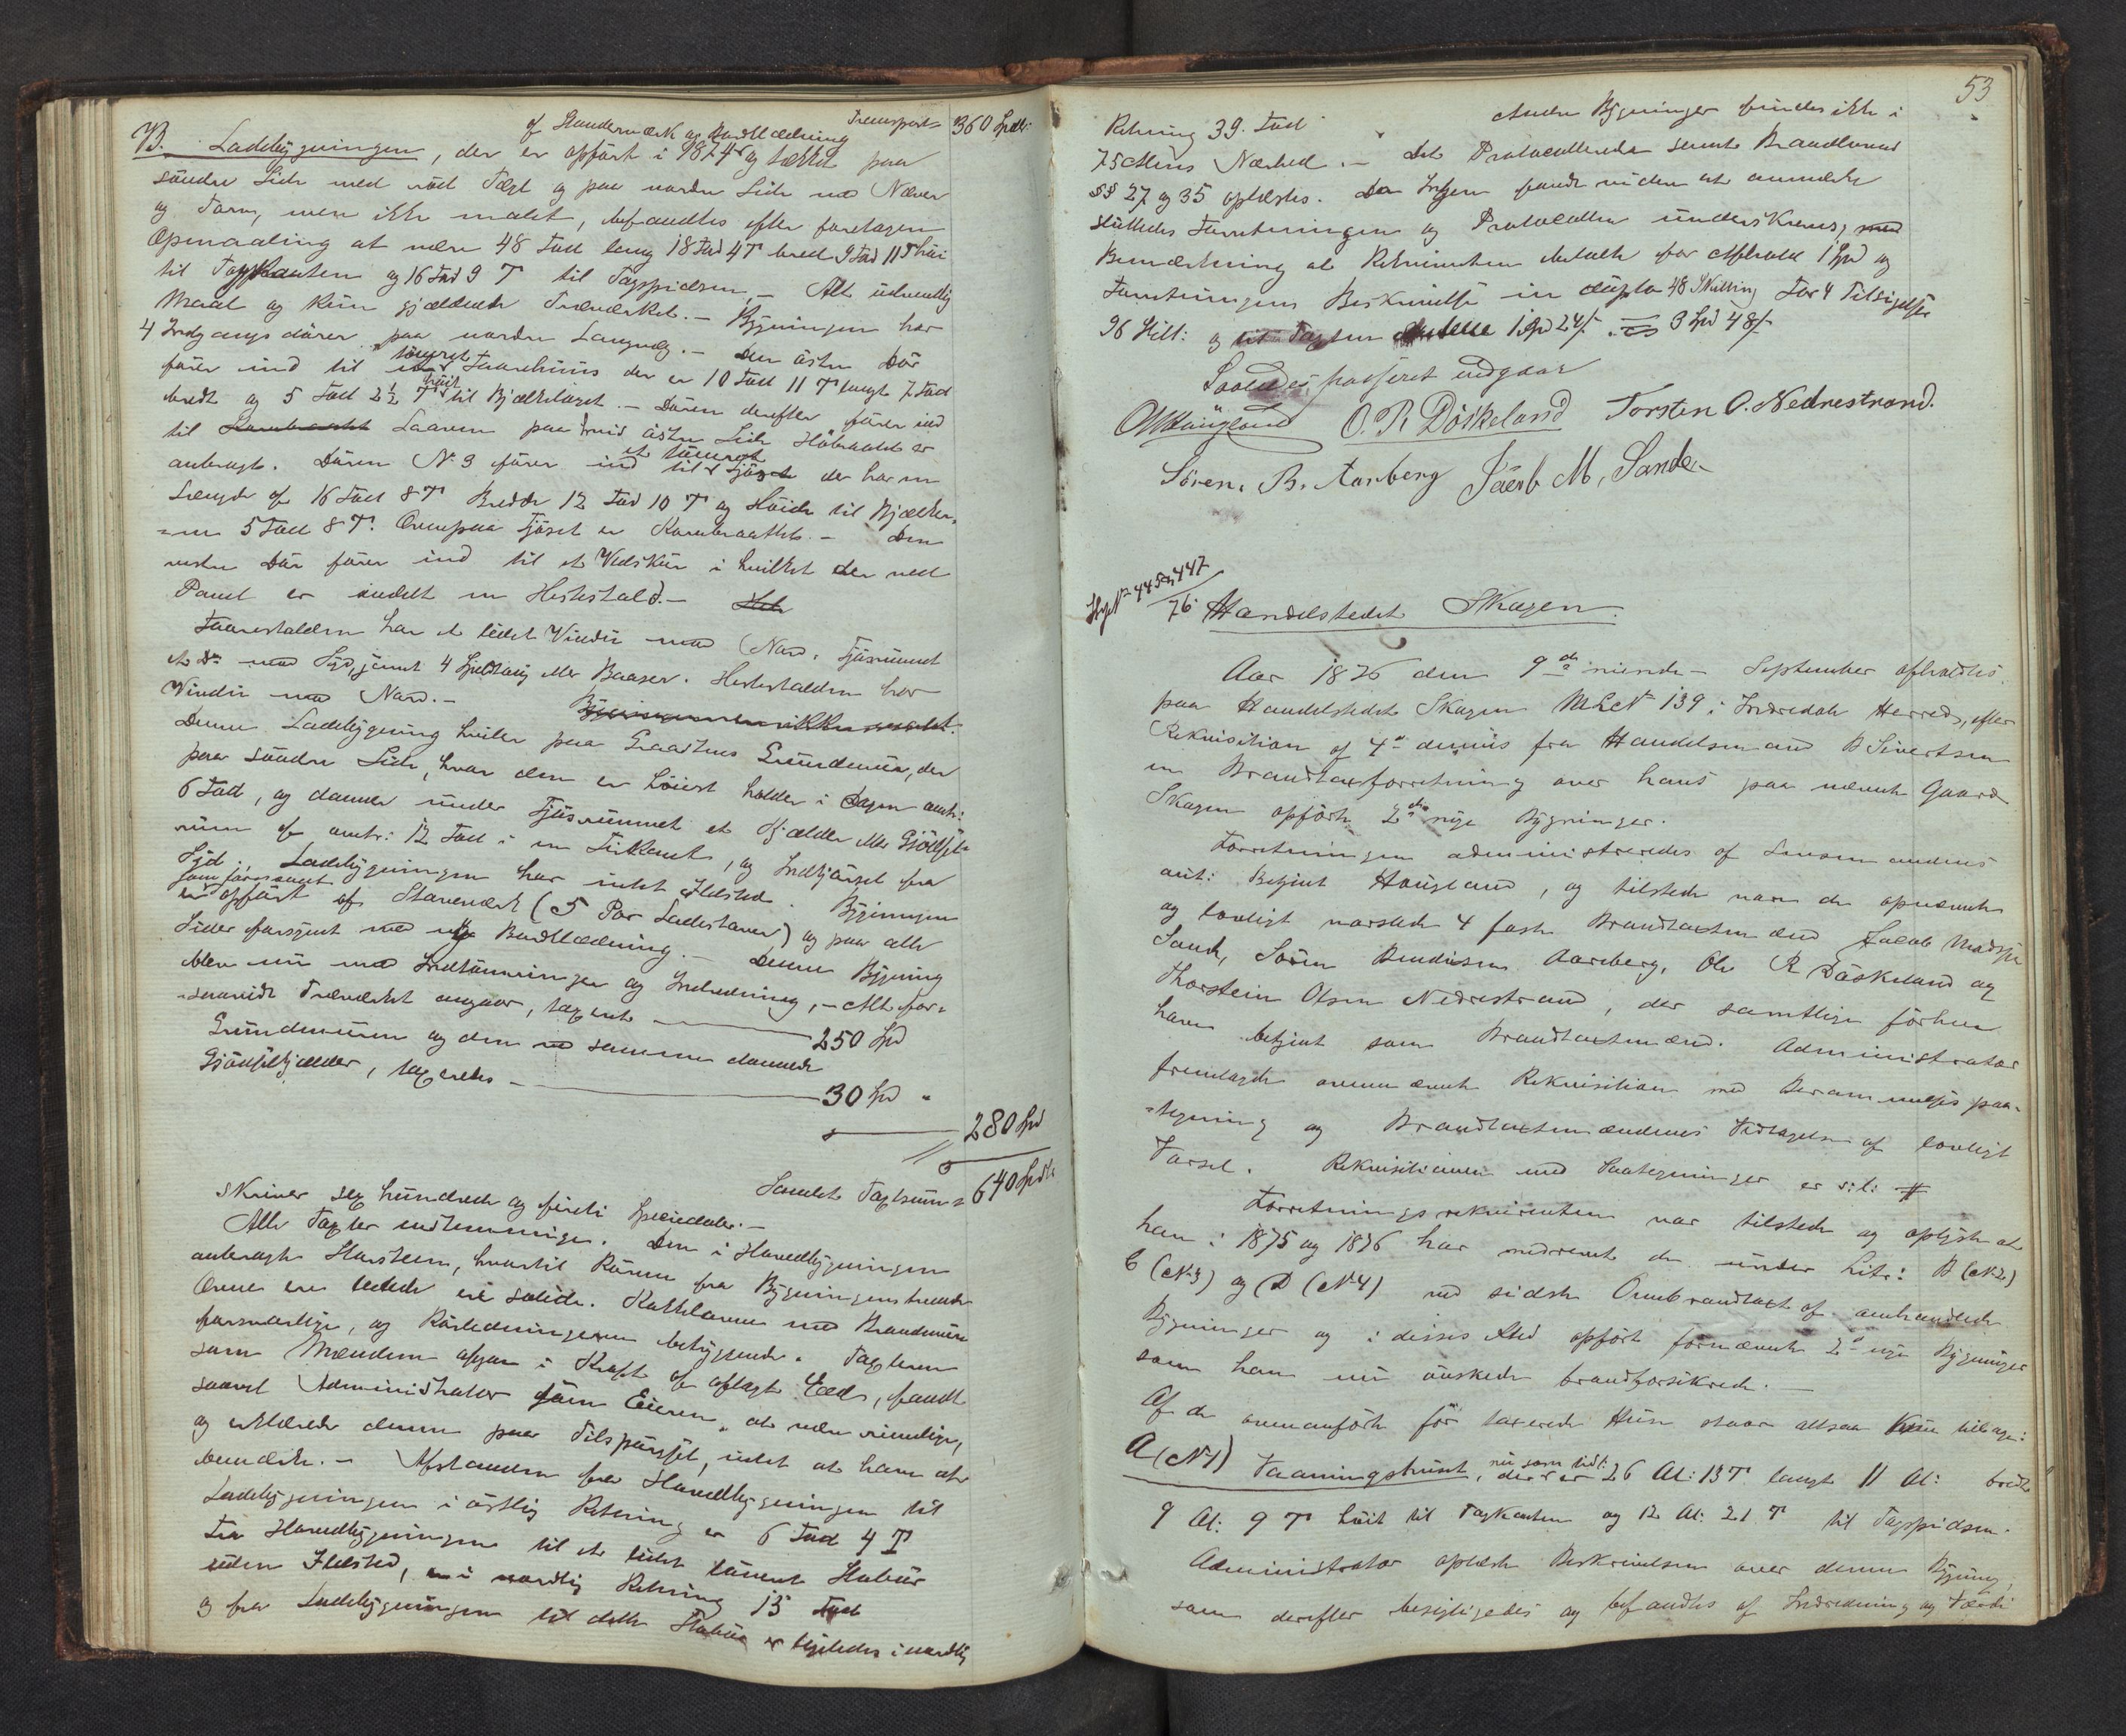 Transport= 360 Spdlr:
af Standerværk og Bordklædning
B. Ladebygningen, der er opført i 1874 og tækket paa
søndre Side med röd Tægl og paa nordre Side med Næver
og Tørv, men ikke malet, befandtes efter foretagen
Opmaaling at være 48 Fod lang 18 Fod 4 T bred 9 Fod 11 T høi
til Tagkanten og 16 Fod 9 T til Tagspidsen. – Alt udvendig
Maal og kun gjældende Træværket. – Bygningen har
4 Indgangsdører paa nordre Langvæg. – Den østre Dør
fører ind til tömret Faarehuus der er 10 Fod 11 T langt 7 Fod
bredt og 5 Fod 2 1/2 T høit til Bjælkelaget. – Døren derefter fører ind
til Laaven paa hvis østre Side Höbraatet er
anbragt. Døren No 3 fører ind til et tömret Fjøs der har en
Længde af 16 Fod 8 T Bredde 12 Fod 10 T og Høide til Bjælker-
=ne 5 Fod 8 T. Ovenpaa Fjøset er Kornbraattet. – Den
vestre Dør fører ind til et Vedskur i hvilket der ved
Panel er inddelt en Hestestald. –
Faarestalden har et lidet Vindu mod Nord. Fjøsrummet
et Do mod Syd, samt 4 Spiltoug eller Baaser. Hestestalden har
Vindu mod Nord. –
Denne Ladebygning hviler paa Graastens Grundmuur, der
paa søndre Side, hvor den er høiest holder i Dagen omtr:
6 Fod, og danner under Fjøsrummet et Kjælder eller Gjødsel-
rum af omtr: 12 Fod i en Firkant, og Indkjørsel fra
Syd. Ladebygningen har intet Ildsted. Bygningen
er somførnævnt opført af Staveværk (5 Par Ladestaver) og paa alle
Sider forsynt med ny Bordklædning. – Denne Bygning
blev nu med Indtømringer og Indredning, – Alt for-
=saavidt Træværket angaar, taxeret 250 Spd
Grundmuren og den ved samme dannede
Gjødselkjælder, taxeredes – 30 Spd "
280 Spd
Samlet Taxtsum = 640 Spdlr
skriver sex hundrede og firti Speciedaler. –
Alle Taxter enstemmige. Den i Hovedbygningen
anbragte Skorsteen, hvortil Rørene fra Bygningens trende
Ovne ere ledede er solide. Kakkelovne med Brandmure
forsvarlige, og Rørledningerne betryggende. Taxterne
som Mændene afgav i Kraft af aflagt Eed, fandt
saavel Administrator som Eieren, at være rimelige,
og erklærede denne paa Tilspørgsel, intet at have at
bemærke. – Afstanden fra Hovedbygningen til
Ladebygningen i østlig Retning er 6 Fod 4 T
Fra Hovedbygningen til et lidet tömret Stabur
uden Ildsted, i nordlig Retning 13 Fod
og fra Ladebygningen til dette Stabur er ligeledes i nordlig
53
Retning 39 Fod. Andre Bygninger findes ikke i
75 Alens Nærhed. – Det Protocollerede samt Brandlovens
§§ 27 og 35 oplæstes. Da Ingen fandt videre at anmærke
sluttedes Forretningen og Protocollen underskreves, med
Bemærkning at Rekvirenten betalte for Afhold 1 Spd og
Forretningens Beskrivelse in duplo 48 Skilling For 4 Tilsigelser
96 Skill: og til Taxten 1 Spd 24 s. = 3 Spd 48 s
Saaledes passeret vedgaar
O. R. Döskeland Torsten O. Nedrestrand.
Sören. B. Aarberg Jacob M, Sande.
445 447
76 Handelstedet Skagen.
Aar 1876 den 9de niende – September afholdtes
paa Handelstedet Skagen MLNo 139 i Indredale Herred, efter
Rekvisition af 4de dennes fra Handelsmand B Sivertsen
en Brandtaxforretning over hans paa nævnte Gaard
Skagen opførte 2de nye Bygninger.
Forretningen administreredes af Lensmandens
ant: Betjent Haugland, og tilstede vare de opnævnte
og lovligt varslede 4 faste Brandtaxtmænd Jacob Madsen
Sande, Sören Bendixen Aarberg, Ole R Döskeland og
Thorstein Olsen Nedrestrand, der samtlige förhen
have betjent som Brandtaxtmænd. Administrator
fremlagde ovennævnte Rekvisition med Berammelses paa-
=tegning og Brandtaxtmændenes Vedtagelse af lovligt
Varsel. Rekvisitionen med Paategninger er s: l: #
Forretningsrekvirenten var tilstede og oplyste at
han i 1875 og 1876 har nedrevet de under Litr: B (No 2)
C (No 3) og D (No 4) ved sidste Ombrandtaxt af omhandlede
Bygninger og i disses Sted opført fornævnte 2de nye Bygninger
som han nu ønskede brandforsikrede. –
Af de ovenanførte før taxerede Huse staar altsaa kun tilbage:
A (No 1) Vaaningshuset, der nu som sidst: er 26 Al: 13 T langt 11 Al: bredt
9 Al: 9 T høit til Tagkanten og 12 Al: 21 T til Tagspidsen.
Administrator oplæste Beskrivelsen over denne Bygning,
som derefter besigtigedes og befandtes af Indredning og Værdi